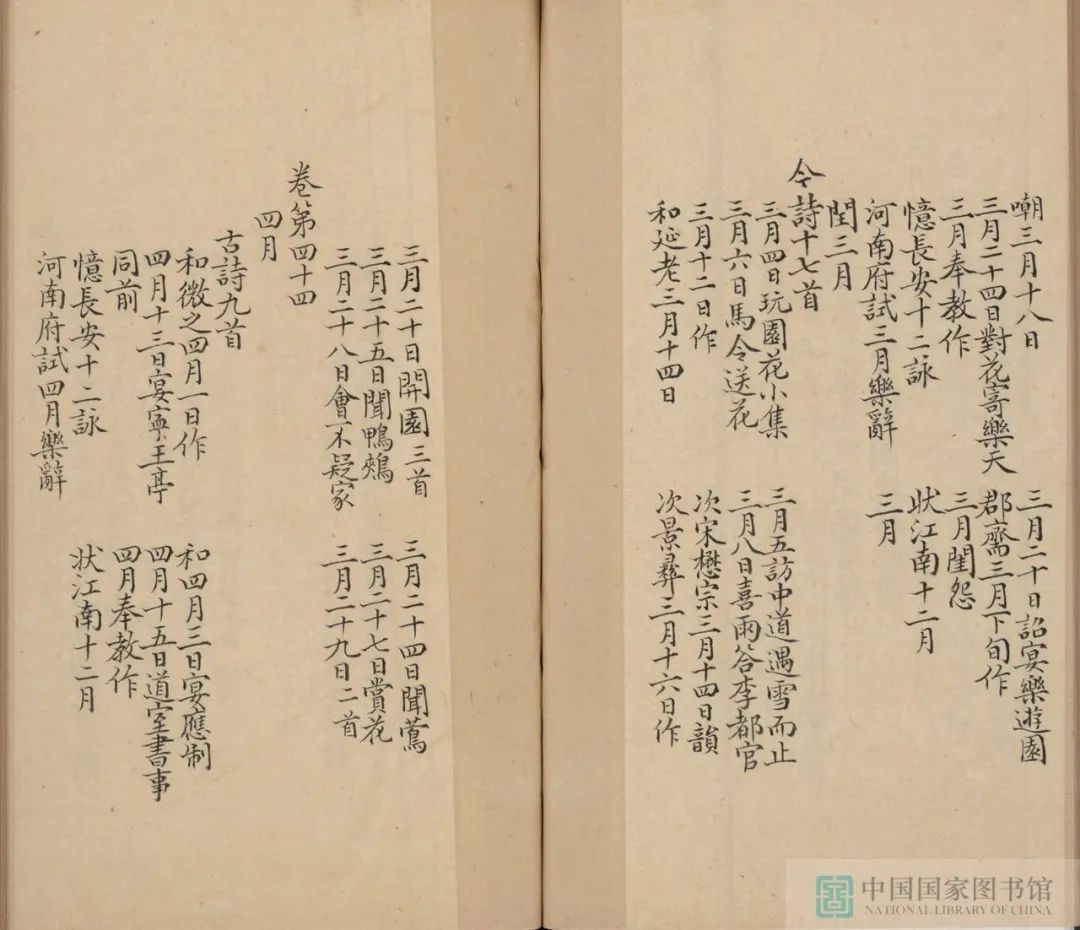 嘲三月十八日 三月二十日詔宴樂遊園
三月二十四日對花寄樂天 郡齋三月下旬作
三月奉教作 三月閨怨
憶長安十二詠 狀江南十二月
河南府試三月樂辭 三月
閏三月
令詩十七首
三月四日玩園花小集 三月五訪中道遇雪而止
三月六日馬令送花 三月八日喜雨答李都官
三月十二日作 次宋懋宗三月十四日韻
和延老三月十四日 次景彞三月十六日作
三月二十日開園三首 三月二十四日聞鶯
三月二十五日聞鴨鵊 三月二十七日賞花
三月二十八日會不疑家 三月二十九日二首
卷第四十四
四月
古詩九首
和微之四月一日作 和四月三日宴應制
四月十三日宴寧王亭 四月十五日道室書事
同前 四月奉教作
憶長安十二詠 狀江南十二月
河南府試四月樂辭
中国国家图书馆
NATIONAL LIBRARY OF CHINA